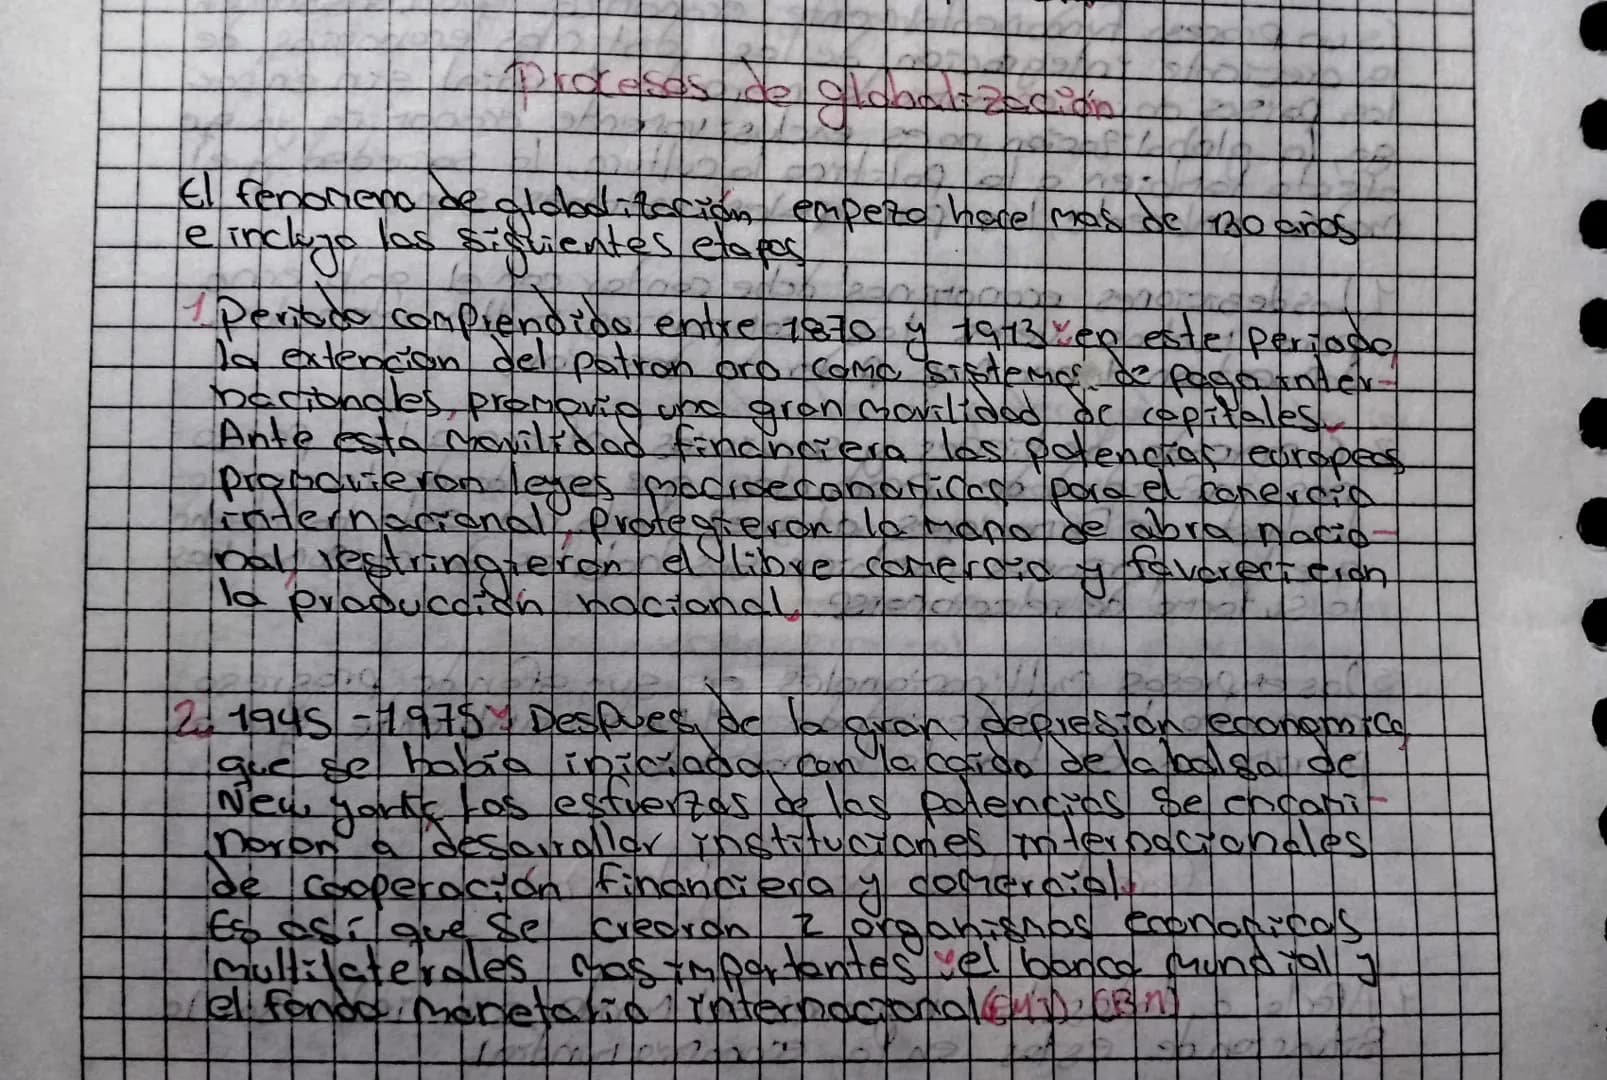 Procesos de globalización
El fenomeno de globalización empezo hace mas de 130 años
e incluyo las siguientes etapas
1 Periodo comprendido entre 1870 y 1913 en este periodo
la extencion del patron oro como sistemas de pago inter-
nacionales, promovio una gran movilidad de capitales.
Ante esta movilidad financiera las potencias europeas
promovieron leyes macroeconomicas para el comercio
internacional, protegieron la mano de obra nacio-
nal, restringieron el libre comercio y favorecieron
la producción nacional.
2. 1945 - 1975 Despues de la gran depresion economica
que se habia iniciado con la caida de la bolsa de
New york los esfuerzos de las potencias se encami-
naron a desarrollar instituciones internacionales
de cooperación financiera y comercial.
Es así que se crearon 2 organismos economicos
multilaterales mas importantes el banco mundial y
el fondo monetario internacional (FMI), (BM)